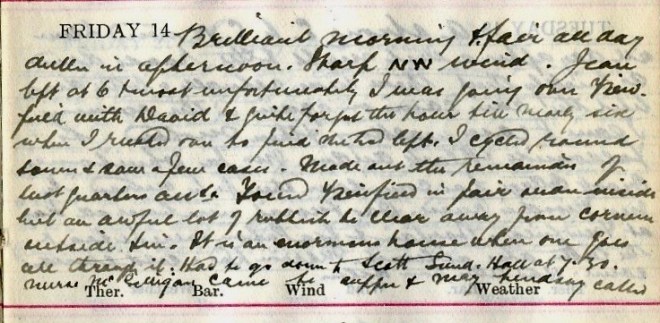 FRIDAY 14 Brilliant morning & fair all day
duller in afternoon. Sharp NW wind. Jean
left at 6 & most unfortunately I was going over View-
field with David & quite forgot the hour till nearly six
when I rushed over to find she had left. I cycled round
town & saw a few cases. Made out the remainder of
last quarters a/cs. Found Viewfield in fair order inside
but an awful lot of rubbish to clear away from corners
outside &c. It is an enormous house when one goes
all through it. Had to go down to Scott Hall at 7.30.
Nurse McGilligan came to supper & May Lindsay called
Ther. Bar. Wind Weather